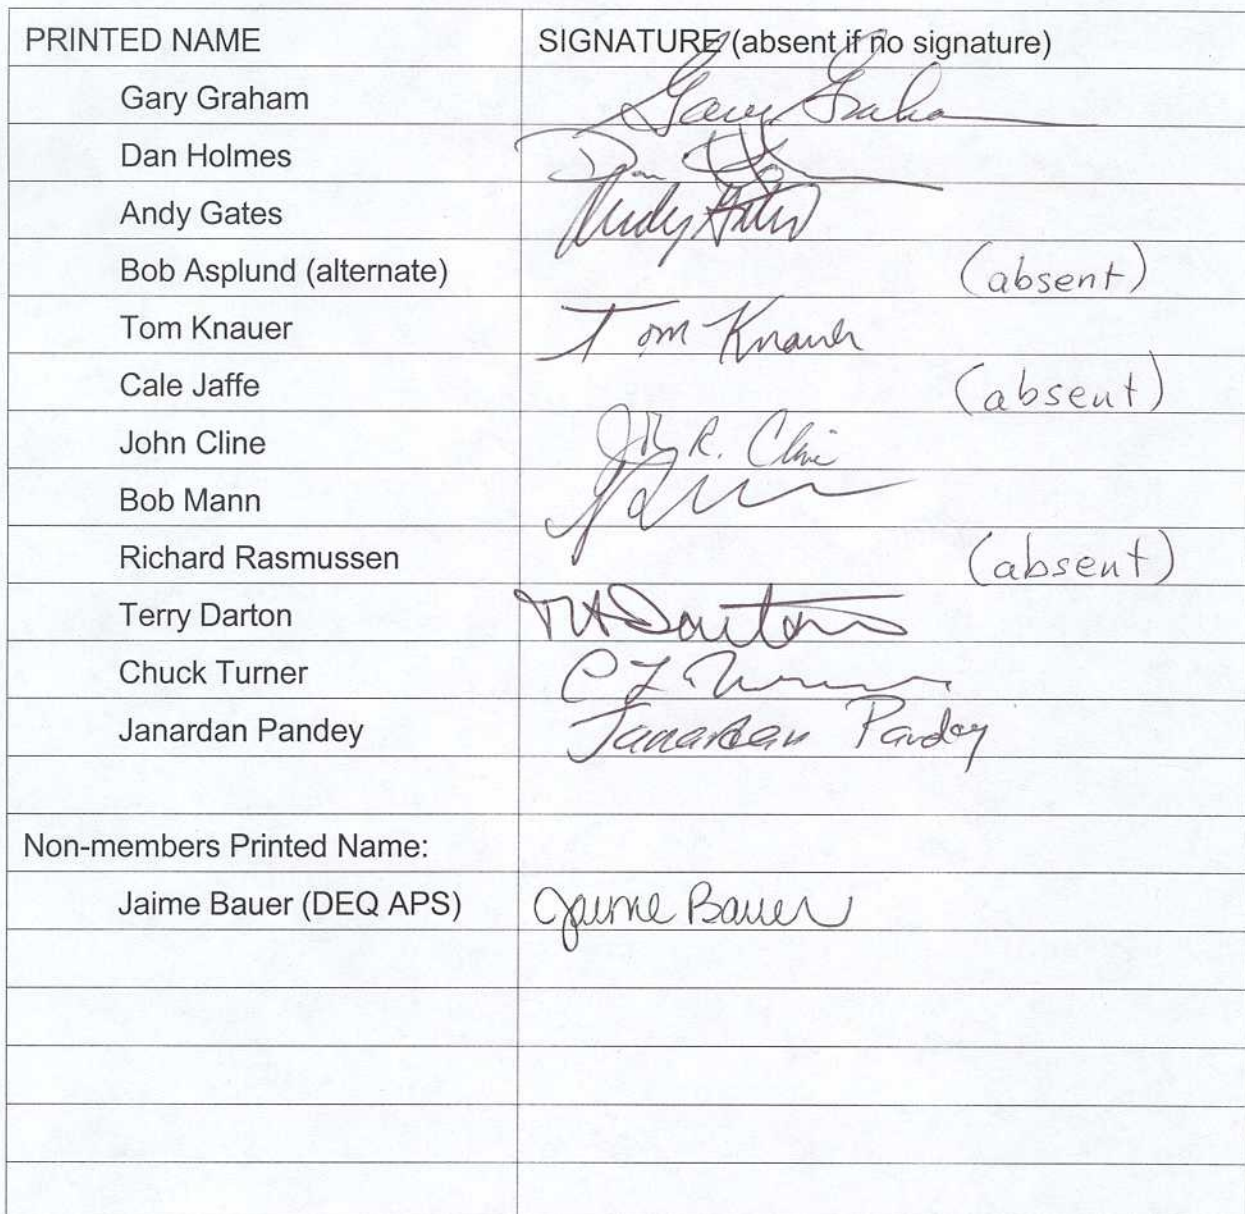 PRINTED NAME SIGNATURE (absent if no signature)
Gary Graham Gary Graham
Dan Holmes Dan
Andy Gates Andy Gates
Bob Asplund (alternate) (absent)
Tom Knauer Tom Knauer
Cale Jaffe (absent)
John Cline R. Cline
Bob Mann
Richard Rasmussen (absent)
Terry Darton Darton
Chuck Turner C L Turner
Janardan Pandey Janardan Pandey
Non-members Printed Name:
Jaime Bauer (DEQ APS) Jaime Bauer